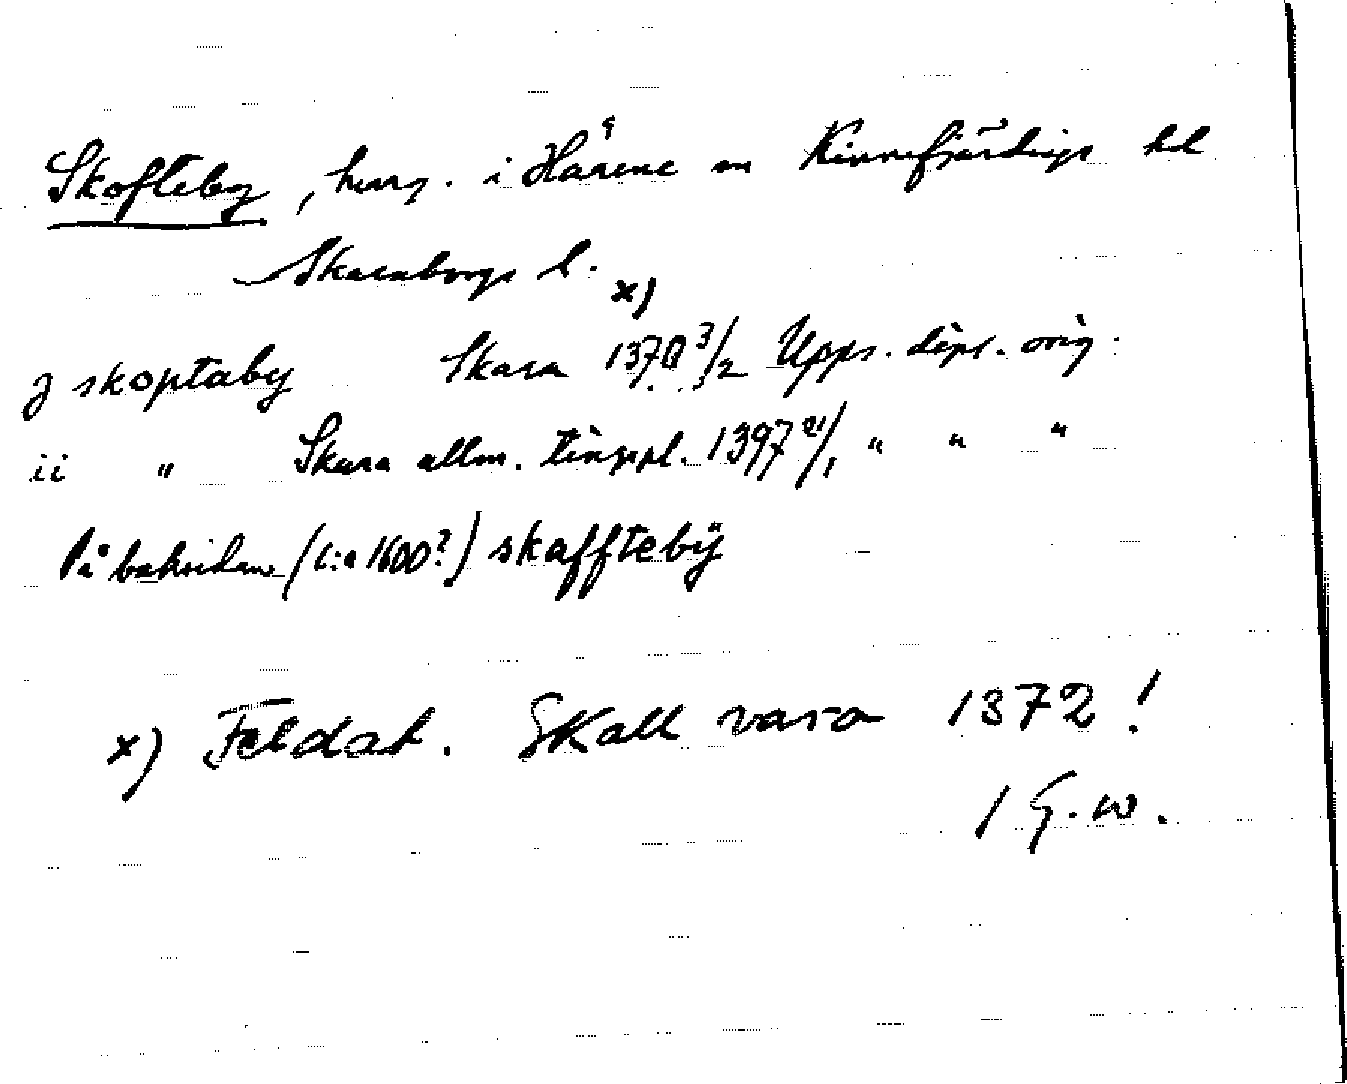 Skofteby, herrg. i Härene sn Kinnefjärdings hd
Skaraborgs l.
x)
j skoptaby Skara 1370 3/2 Upps. dipl. orig.
ii " Skara allm. tingspl. 1397 21/1 " " "
På baksidan (c:a 1600?) skafftebÿ
x) Feldat. Skall vara 1372!
/ G.W.